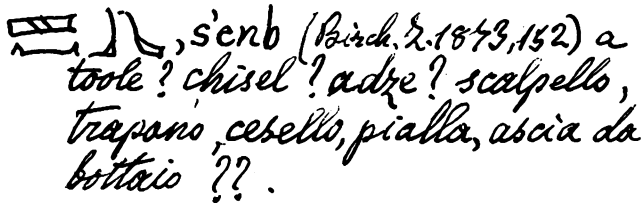 , s'enb (Birch. Z. 1873, 152) a
toole? chisel? adze? scalpello,
trapano, cesello, pialla, ascia da
bottaio ??.